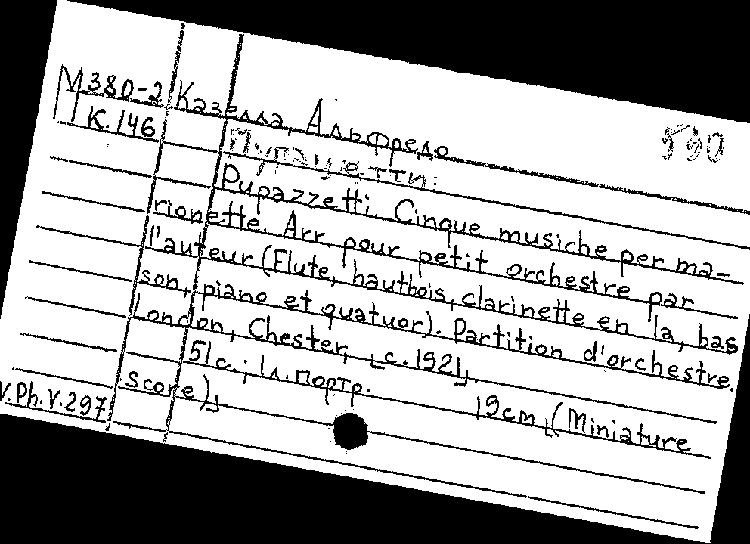 М380-2 Казелла, Альфредо
К.146 590
Пупацетти.
Pupazzetti. Cinque musiche per ma-
rionette. Arr. pour petit orchestre par
l'auteur (Flute, hautbois, clarinette en la, bas
son, piano et quatuor). Partition d'orchestre.
London, Chester, [c. 1921].
51 с.; 1 л. портр. 19cm [(Miniature
score)]
V.Ph.V.297